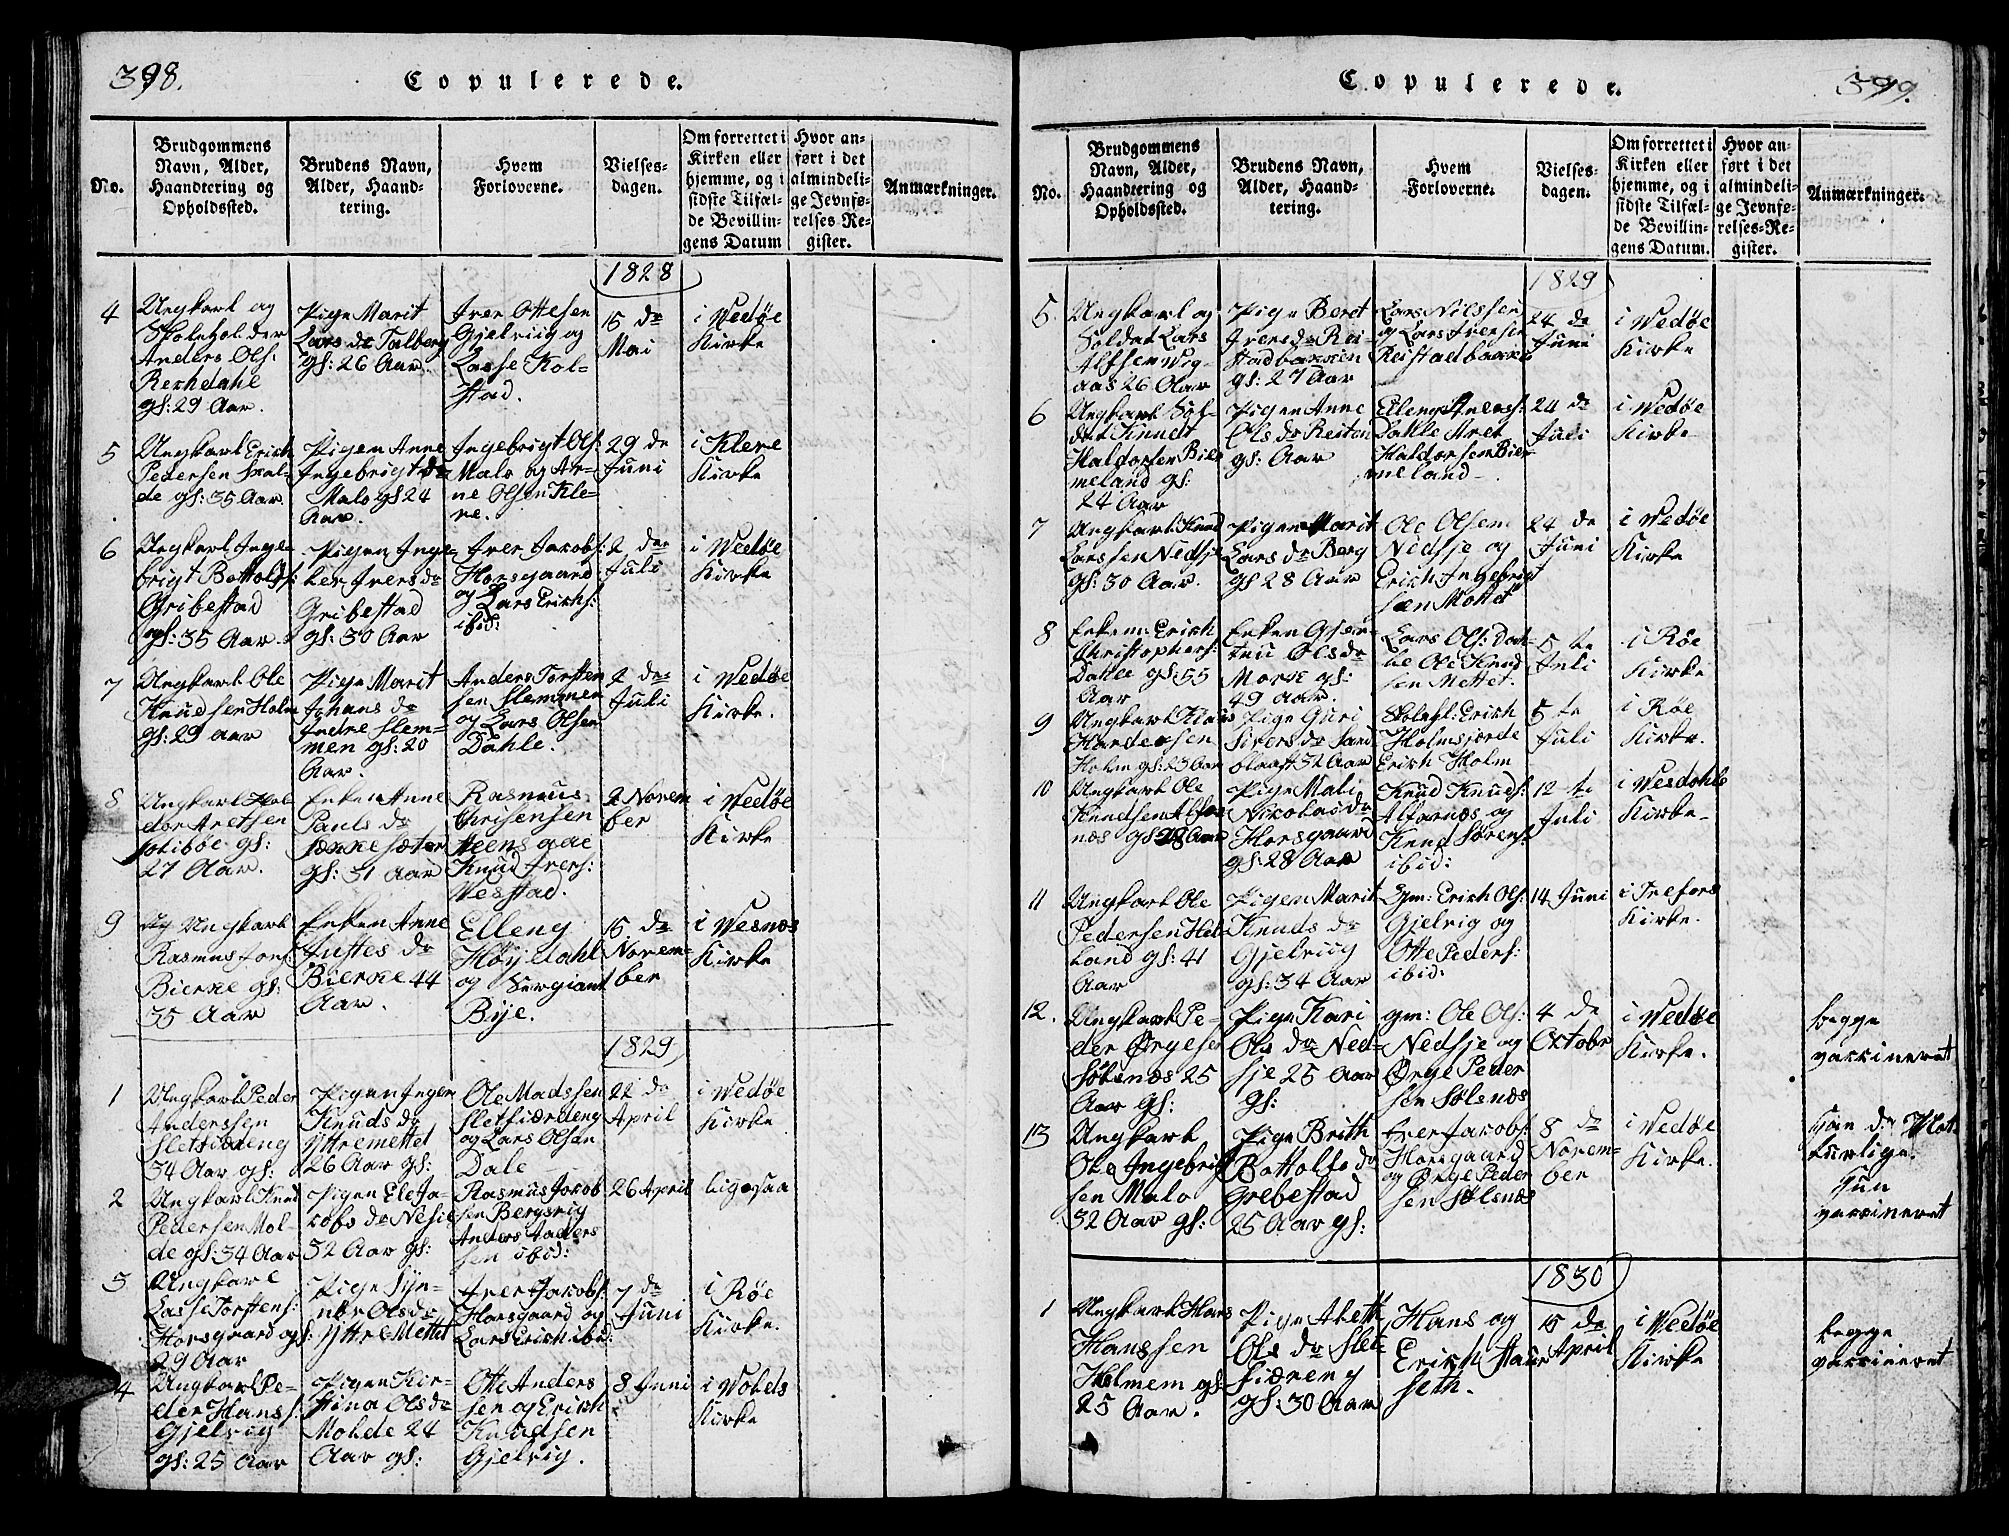 398.
Copulerede.
No.
Brudgommens
Navn, Alder,
Haandtering og
Opholdssted.
Brudens Navn,
Alder, Haand-
tering.
Hvem
Forloverne.
Vielses-
dagen.
Om forrettet i
Kirken eller
hjemme, og i
sidste Tilfæl-
de Bevillin-
gens Datum
Hvor an-
ført i det
almindeli-
ge Jevnfø-
relses-Re-
gister.
Anmærkninger.
1828
4
Ungkarl og
Skoleholder
Anders Ols:
Rekhdahl
gl: 29 Aar.
Pige Marit
Lars dr Talberg
gl: 26 Aar.
Iver Ottesen
Gjelviig og
Lasse Kol-
stad.
15 de
Mai
i Wedøe
Kirke
5
Ungkarl Erich
Pedersen
de gl: 35 Aar.
Pigen Anne
Ingebrigt dr
Malo gl 24
Aar.
Ingebrigt Ols:
Malo og Ar-
ne Olsen Kle-
ve.
29 de
Juni
i Kleve
Kirke
6
Ungkarl Inge-
brigt Bottolfs:
Gribestad
gl: 35 Aar.
Pigen Inge-
ber Ivers dr
Gribestad
gl: 30 Aar
Iver Jakobs:
Horsgaard
og Lars Erichs:
ibid:
2 den
Juli
i Wedøe
Kirke
7
Ungkarl Ole
Knudsen Holm
gl: 29 aar
Pige Marit
Johans dr
Indre Slem-
men gl: 20
Aar.
Anders Torsten
sen Slemmen
og Lars Olsen
Dahle.
2 den
Juli
i Wedøe
Kirke.
8
Ungkarl Hal
dor Aretsen
gl:
27 Aar.
Enken Anne
Pauls dr
gl: 31 aar
Rasmus
Chrisensen
Heensaae
Knud Ivers:
Vestad.
2 Novem
ber
i Wedøe
Kirke
9
Ungkarl
Rasmus Jons:
Bierke gl:
35 Aar
Enken Anne
Justes dr
Bierke 44
Aar.
Elleng
Höyedahl
og Sergiant
Bye.
15 de
Novem-
ber
i Vesnes
Kirke
1829
1
Ungkarl Peder
Anderssen
Sletfiæreng
34 Aar gl:
Pigen Inger
Knuds dr
Yttremettet
26 Aar gl:
Ole Madssen
Sletfiærdeng
og Lars Olsen
Dale
22 de
April
i Wedøe
Kirke.
2
Ungkarl Knud
Pedersen Mol-
de gl: 34 Aar
Pigen Ele Ja-
kobs dr Nesie
32 Aar gl:
Rasmus Jakob
sen Bergsvig
Anders Anders
sen ibid:
26 April
ligesaa
3
Ungkarl
Lasse Torstens:
Horsgaard gl:
29 Aar
Pige Syn-
nev Ols dr
Yttre Mettet
Iver Jakobs:
Horsgaard og
Lars Erich ibd:
7 de
Juni
i Røe
Kirke.
4
Ungkarl Pe-
der Hans:
Gjelviig
gl: 25 Aar
Pigen Kir-
stina Ols dr
Mohde 24
Aar gl:
Otte Anders
sen og Erich
Knudsen
Gjelvig.
8 Juni
i Volds
Kirke
399.
Copulerede.
No.
Brudgommens
Navn, Alder,
Haandtering og
Opholdssted.
Brudens Navn,
Alder, Haand-
tering.
Hvem
Forloverne.
Vielses-
dagen.
Om forrettet i
Kirken eller
hjemme, og i
sidste Tilfæl-
de Bevillin-
gens Datum.
Hvor an-
ført i det
almindeli-
ge Jevnfø-
relses-Re-
gister.
Anmærkninger.
1829
5.
Ungkarl og
Soldat Lars
aas 26 Aar
Pige Beret
Ivers dr Rei-
stadbakken
gl: 27 Aar
Lars Nilssen
og Lars Iversen
Reistadbakke
24 de
Juni
i Wedøe
Kirke
6
Ungkarl Sol-
dat Knudt
Haldorsen Bier
meland gl:
24 Aar
Pigen Anne
Ols dr Reiten
gl: Aar
Elleng
Dahle Aret
Haldorsen Bier
meland
24 de
Juli
i Wedøe
Kirke
7
Ungkarl Knud
Larssen Nedsje
gl: 30 Aar.
Pigen Marit
Lars dr Berg
gl 28 Aar
Ole Olsen
Nedsje og
Erich Ingebrigt
sen Mettet
24 de
Juni
i Wedøe
Kirke
8
Enkem: Erich
Christophers:
Dahle gl: 55
Aar
Enken Gier-
tru Ols dr
Morke gl:
49 aar
Lars Ols: Dah-
le Ole Knud
sen Mettet.
5 te
Juli
i Røe
Kirke.
9
Ungkarl Klaus
Holm gl: 23 Aar
Pige Guri
Sivers dr
32 Aar
Skolehl: Erich
Holmsjorde
Erich Holm
5 te
Juli
i Røe
Kirke.
10
Ungkarl Ole
Knudsen Alfar
nes gl 28 Aar
Pige Mali
Nikolas dr
Horsgaard
gl: 28 Aar
Knud Knuds:
Alfarnes og
Knud Sørens:
ibid:
12 te
Juli
i Vesdahls
Kirke
11
Ungkarl Ole
Pedersen Hel-
land gl: 41
Aar
Pigen Marit
Knuds dr
Gjelviig
gl: 34 Aar
Gm: Erich Ols:
Gjelvig og
Otte Peders:
ibid:
14 Juni
i Trefors
Kirke.
12.
Ungkarl Pe-
der Ørgesen
Sölsnæs 25
Aar gl:
Pige Kari
Ols dr Ned-
sje 25 Aar
gl:
gm: Ole Ols:
Nedsje og
Ørge Peder
sen Sølsnæs
4 de
Octobr
i Wedøe
Kirke.
begge
vaxineret
13
Ungkarl
Ole Ingebrigt
sen Malo
32 Aar gl:
Pige Brith
Bottolfs dr
Grebestad
25 Aar gl:
Iver Jakobs:
Horsgaard
og Ørge Peder
sen Sølsnæs
8 de
Novem-
ber
i Vedøe
Kirke.
Han d: Nat
turlige.
Hun
vaxineret
1830
1
Ungkarl Hans
Hanssen
Helmem gl:
25 Aar.
Pige Abeth
Ols dr Slet-
fiæreng
gl: 30 Aar
Hans og
Erich Haur-
seth.
15 de
April
i Wedøe
Kirke
begge
vaxineret